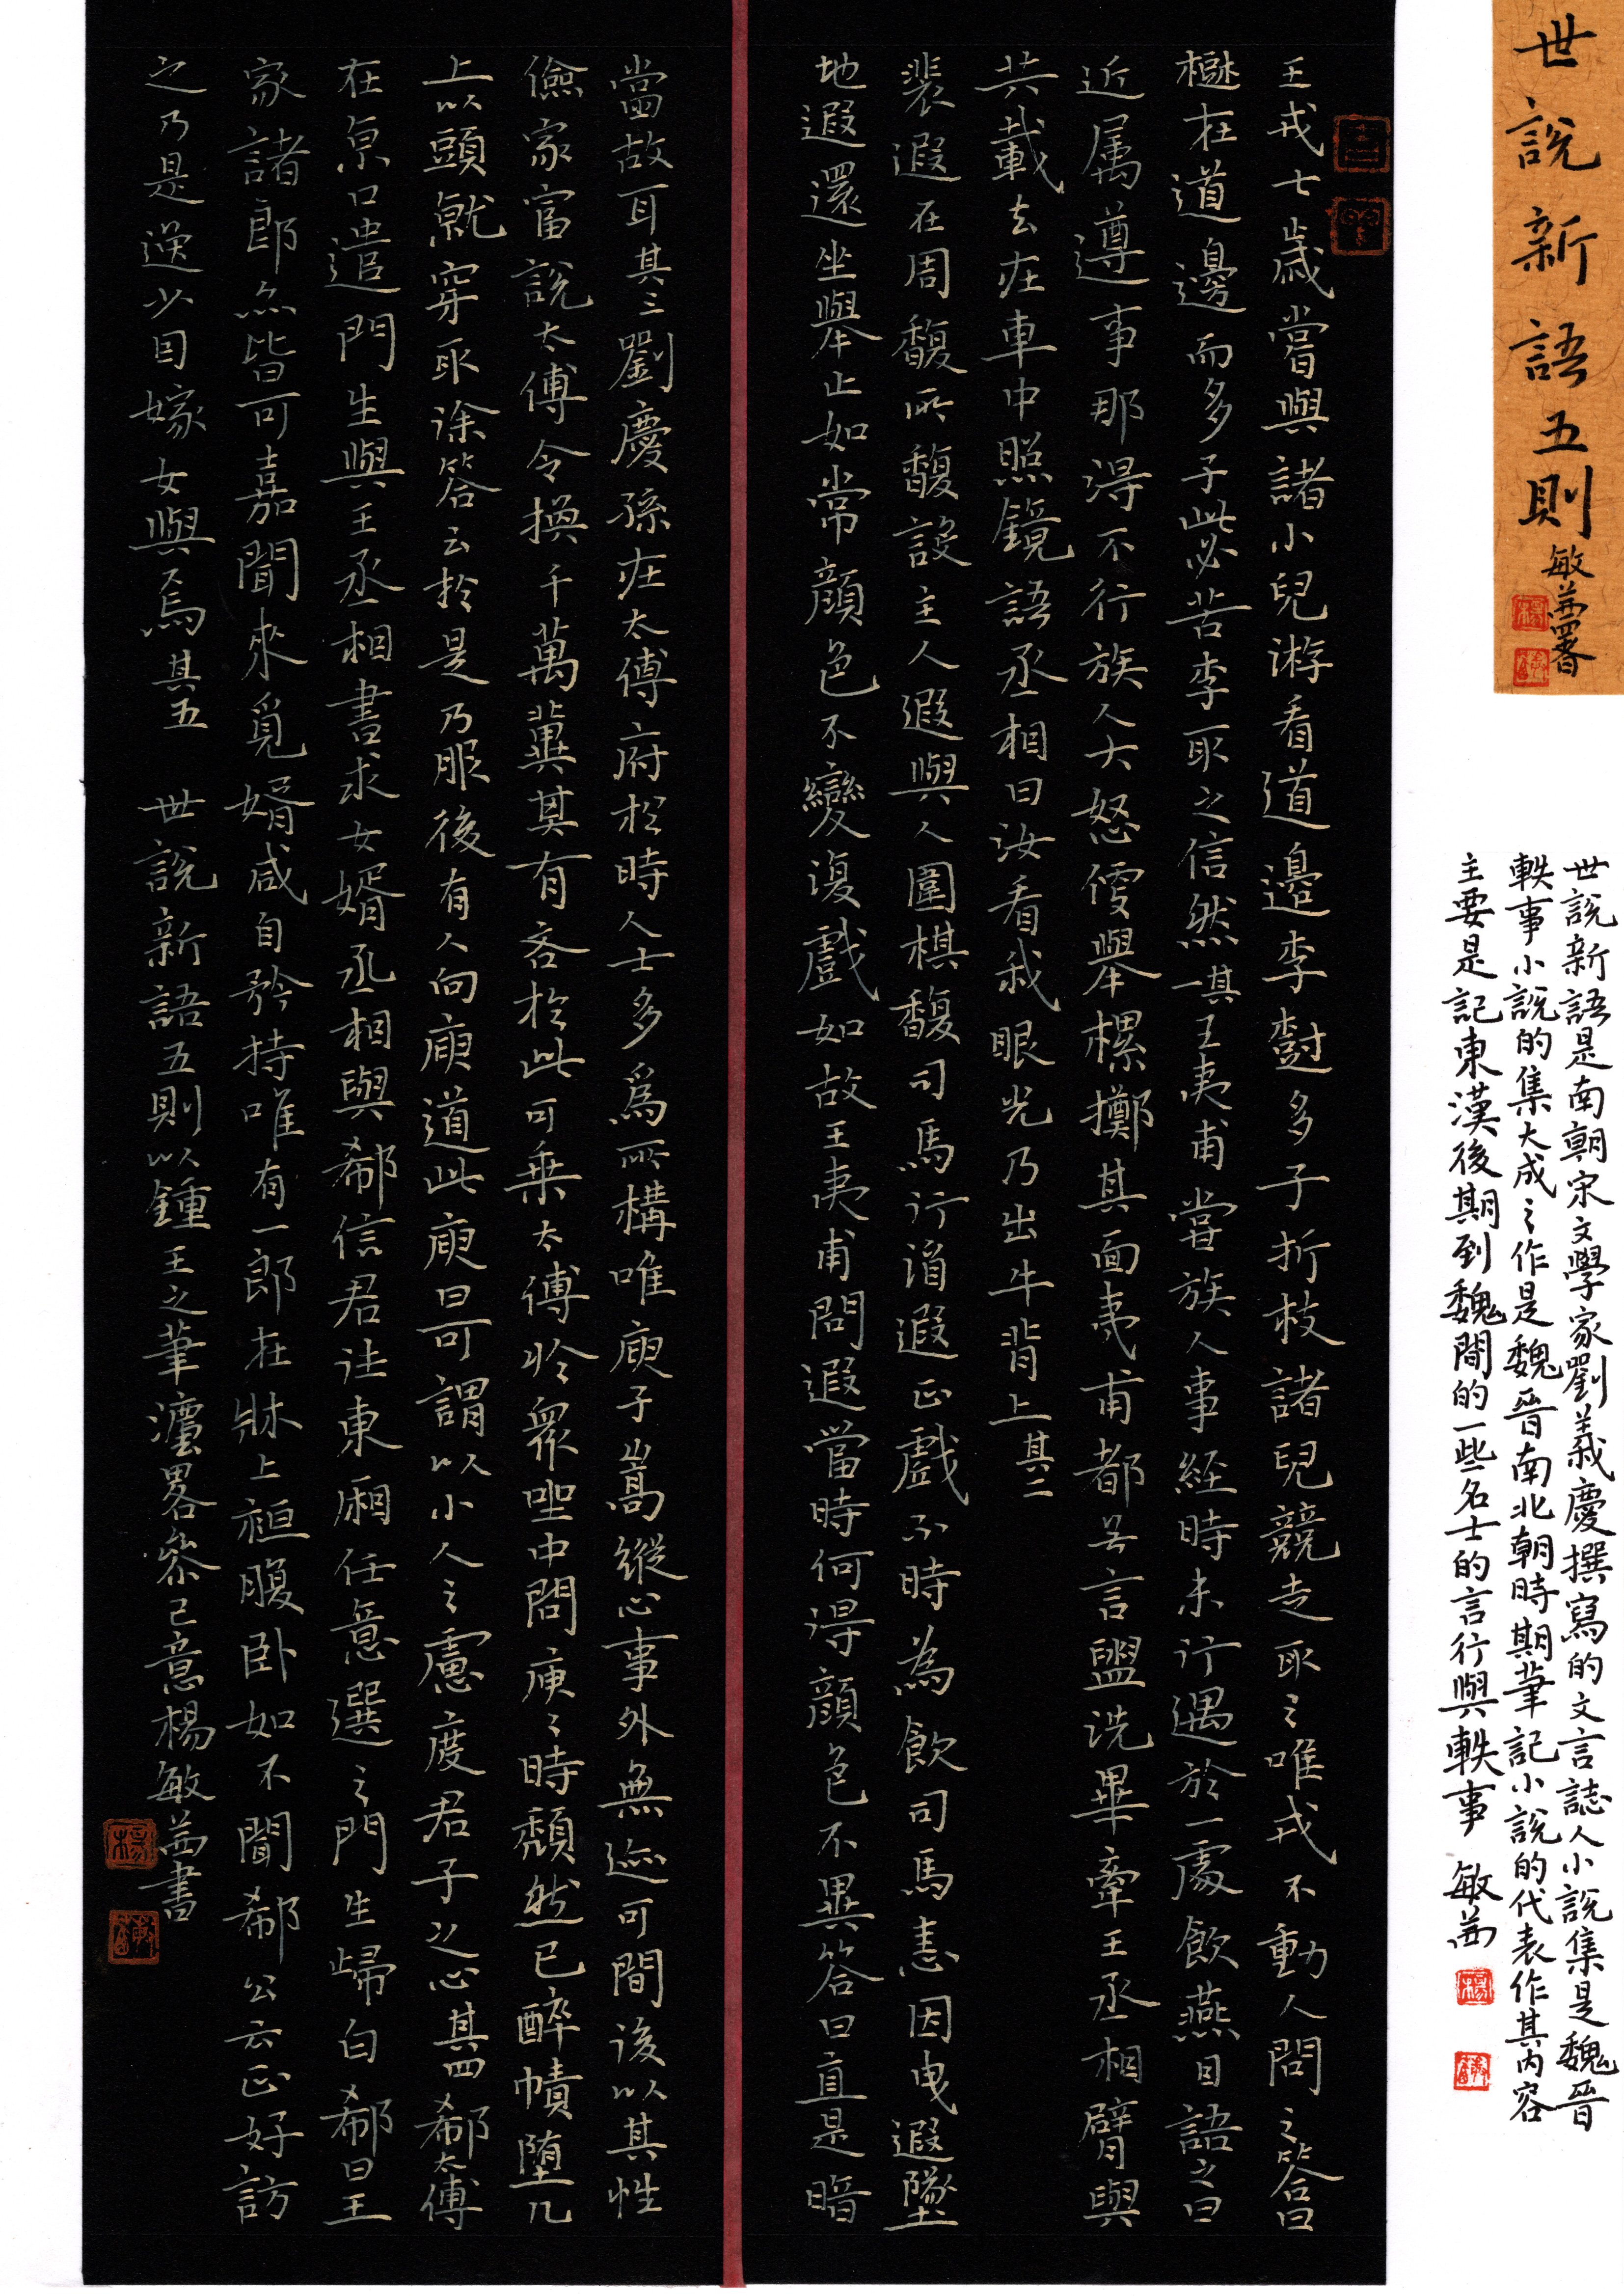 世說新語五則
敏茜署
世說新語是南朝宋文學家劉義慶撰寫的文言誌人小說集是魏晉
軼事小說的集大成之作是魏晉南北朝時期筆記小說的代表作其內容
主要是記東漢後期到魏間的一些名士的言行與軼事 敏茜
王戎七歲嘗與諸小兒游看道邊李樹多子折枝諸兒競走取之唯戎不動人問之答曰
樹在道邊而多子此必苦李取之信然其一王夷甫嘗族人事經時未行遇於一處飲燕因語之曰
近屬尊事那得不行族人大怒便舉樏擲其面夷甫都無言盥洗畢牽王丞相臂與
共載去在車中照鏡語丞相曰汝看我眼光乃出牛背上其二
裴遐在周馥所馥設主人遐與人圍棋馥司馬行酒遐正戲不時為飲司馬恚因曳遐墜
地遐還坐舉止如常顏色不變復戲如故王夷甫問遐當時何得顏色不異答曰直是暗
當故耳其三劉慶孫在太傅府於時人士多為所構唯庾子嵩縱心事外無迹可間後以其性
儉家富說太傅令換千萬冀其有吝於此可乘太傅於眾坐中問庾々時頹然已醉幘墮几
上以頭就穿取徐答云於是乃服後有人向庾道此庾曰可謂以小人之慮度君子之心其四郗太傅
在京口遣門生與王丞相書求女婿丞相與郗信君往東廂任意選之門生歸白郗曰王
家諸郎亦皆可嘉聞來覓婿咸自矜持唯有一郎在牀上袒腹臥如不聞郗公云正好訪
之乃是逸少因嫁女與焉其五 世說新語五則以鍾王之筆灋畧參己意楊敏茜書